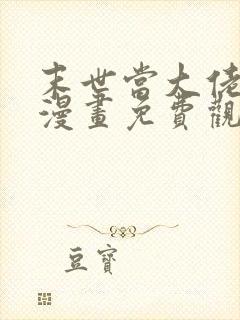 末世當大佬
漫畫免費觀
豆寶